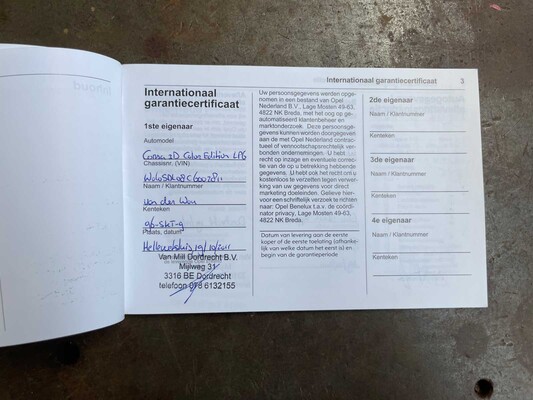 Internationaal garantiecertificaat 3
Internationaal
garantiecertificaat
1ste eigenaar
Automodel
Corsa 3D Color Edition LPG
Chassisnr. (VIN)
Naam / Klantnummer
van der Wou
Kenteken
Plaats, datum
Hellevoetsluis 19/10/2011
Van Mill Dordrecht B.V.
Mijlweg 31
3316 BE Dordrecht
telefoon 078 6132155
Uw persoonsgegevens werden opge-
nomen in een bestand van Opel
Nederland B.V., Lage Mosten 49-63,
4822 NK Breda, met het oog op ge-
automatiseerd klantenbeheer en
marktonderzoek. Deze persoonsge-
gevens kunnen worden doorgegeven
aan de met Opel Nederland contrac-
tueel of vennootschapsrechtelijk ver-
bonden ondernemingen. U hebt
recht op inzage en eventuele correc-
tie van de op u betrekking hebbende
gegevens. U hebt ook het recht om u
kosteloos te verzetten tegen verwer-
king van uw gegevens voor direct
marketing doeleinden. Gelieve hier-
voor een schriftelijk verzoek te richten
naar: Opel Benelux t.a.v. de coördi-
nator privacy, Lage Mosten 49-63,
4822 NK Breda.
Datum van levering aan de eerste
koper of de eerste toelating (afhanke-
lijk van welke datum het eerst is) en
begin van de garantieperiode
2de eigenaar
Naam / Klantnummer
Kenteken
3de eigenaar
Naam / Klantnummer
Kenteken
4e eigenaar
Naam / Klantnummer
Kenteken